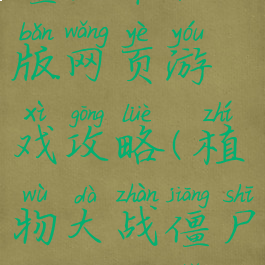 bǎn wǎng yè yóu
版网页游
xì gōng lüè zhí
戏攻略(植
wù dà zhàn jiāng shī
物大战僵尸